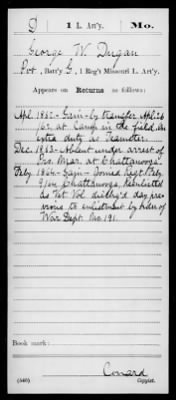 D 1 L. Art'y. Mo.
George W. Dugan
Pvt, Batt'y G, 1 Reg't Missouri L. Art'y.
Appears on Returns as follows:
Apl. 1862 - Gain - by transfer Apl. 26
62. at Camp in the field. On
extra duty as Teamster.
Dec. 1863 - Absent under arrest of
Pro. Mar. at Chattanooga.
Feby 1864 - Gain - Joined Regt Feby
9/64 Chattanooga, Reenlisted
as Vet Vol disch'd day pre-
vious to enlistment by order of
War Dept No. 191.
Book mark:
(546)
Conard
Copyist.